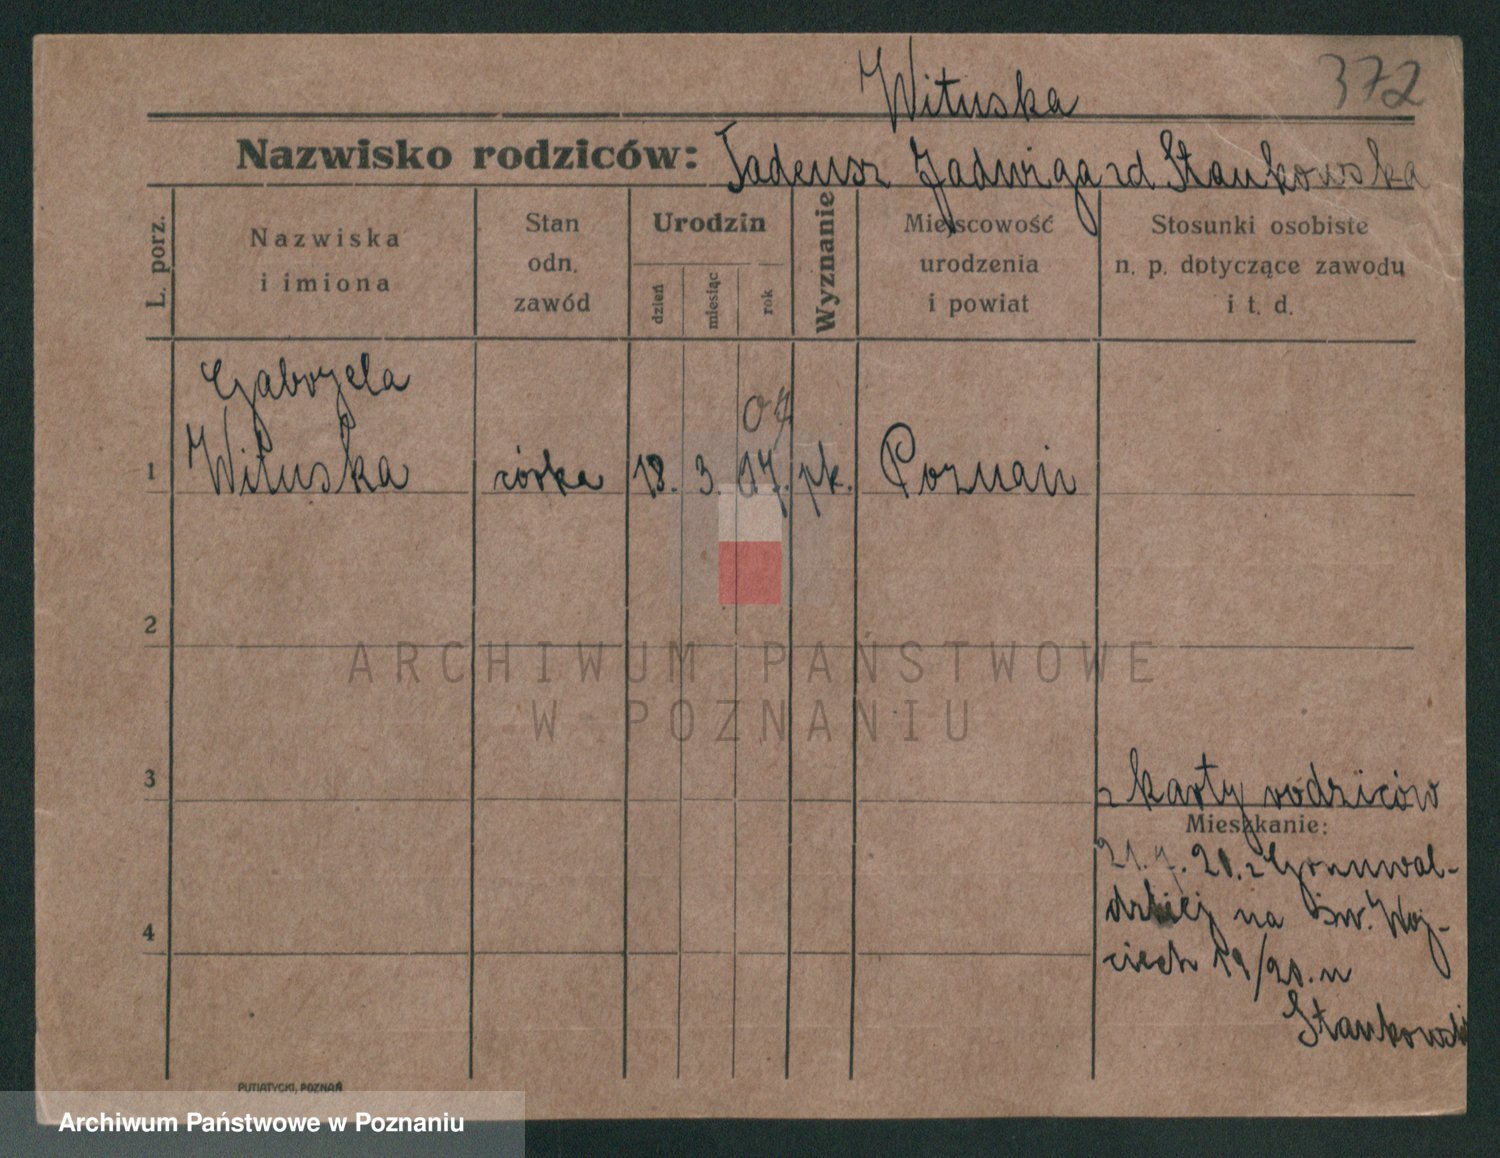 Wituska 372
Nazwisko rodziców: Tadeusz Jadwiga zd Stankowska
L. porz.
Nazwiska
i imiona
Stan
odn.
zawód
Urodzin
dzień
miesiąc
rok
Wyznanie
Miejscowość
urodzenia
i powiat
Stosunki osobiste
n. p. dotyczące zawodu
i t. d.
Gabryela
04
1 Wituska córka 18. 3. 17. pk. Poznań
2
ARCHIWUM PAŃSTWOWE
W POZNANIU
3
z karty rodziców
Mieszkanie:
21. 20. z Grunwal-
dzkiej na Św. Woj-
4
ciech 19/20. u
Stankowski
PUTIATYCKI, POZNAŃ
Archiwum Państwowe w Poznaniu